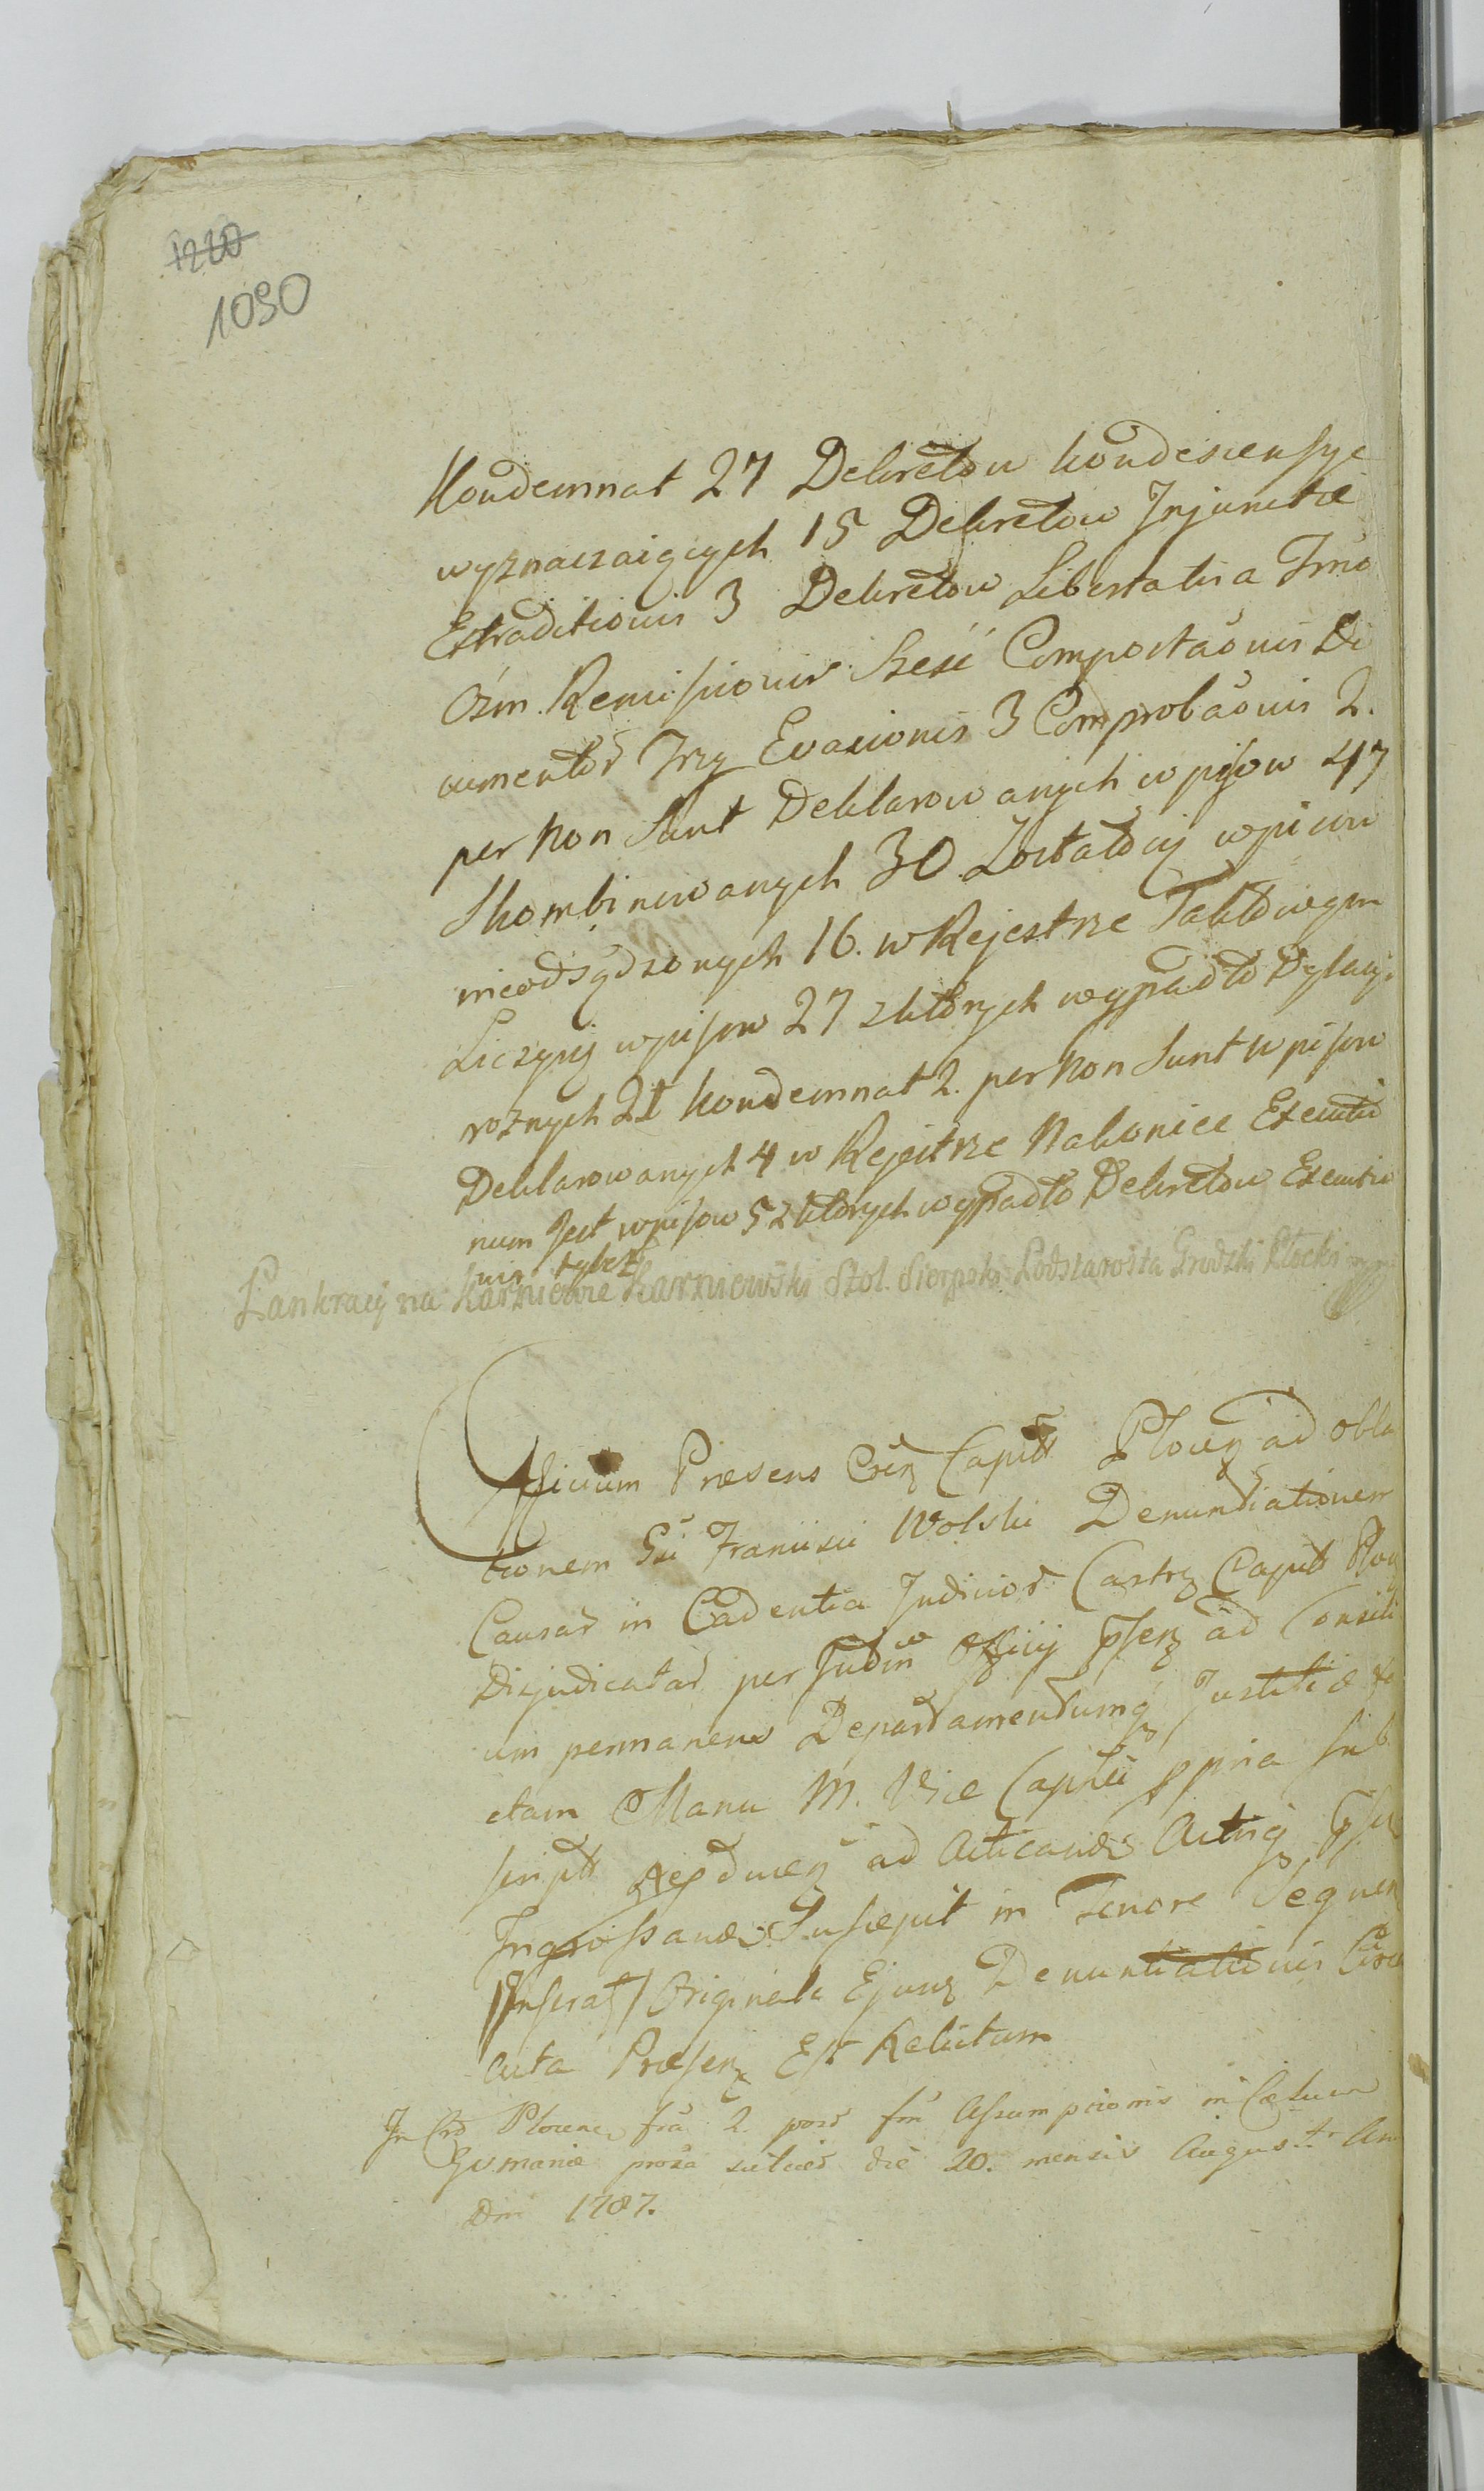 1220
1090
Kondemnat 27 Dekretow kondescensye
wyznaczaiących 15 Dekretow Injunctæ
Extraditionis 3 Dekretow Libertatis a Tmo
Ośm. Remissionis Sześć Comportaōnis Do
cumentor̄ Trzy Evasionis 3 Comprobaōnis 2.
per Non Sunt Deklarowanych wpisow 47
Skombinowanych 30. Zostało się wpisow
nieodsądzonych 16. w Rejestrze Taktowym
Liczyły wpisow 27 z ktorych wypadło Dylacyi
roznych 21 kondemnat 2. per Non Sunt wpisow
Deklarowanych 4 w Rejestrze Nakoniec Executio
num Jest wpisow 5 z ktorych wypadło Dekretow Executio
nis tyleż
Pankracy na Karniewie Karniewski Stol. Sierpski Podstarosta Grodzki Płocki mpp
Officium Præsens Cren Capitt Plocen ad obla
tionem Gsi Francisci Wolski Denuntiationem
Causar̄ in Cadentia Judicior̄ Castren Capitt Ploc
Disjudicatar̄ per Judm Officij pñsen ad Consili
um permanens Departamentumq Justitiæ
ctam Manu M. Vice Capitei ppria sub
script ad Acticand Actisq pñs
Ingrossand Suscepit in Tenore Sequen
/Inserat/ Originale Ejusd Denuntiationis Circa
Acta Præsen Est Relictum
In Cro Plocen fria 2. post fm Assumptionis in Cælum
Gv. Mariæ proxa scilicet die 20. mensis Augusti An
Dni 1787.